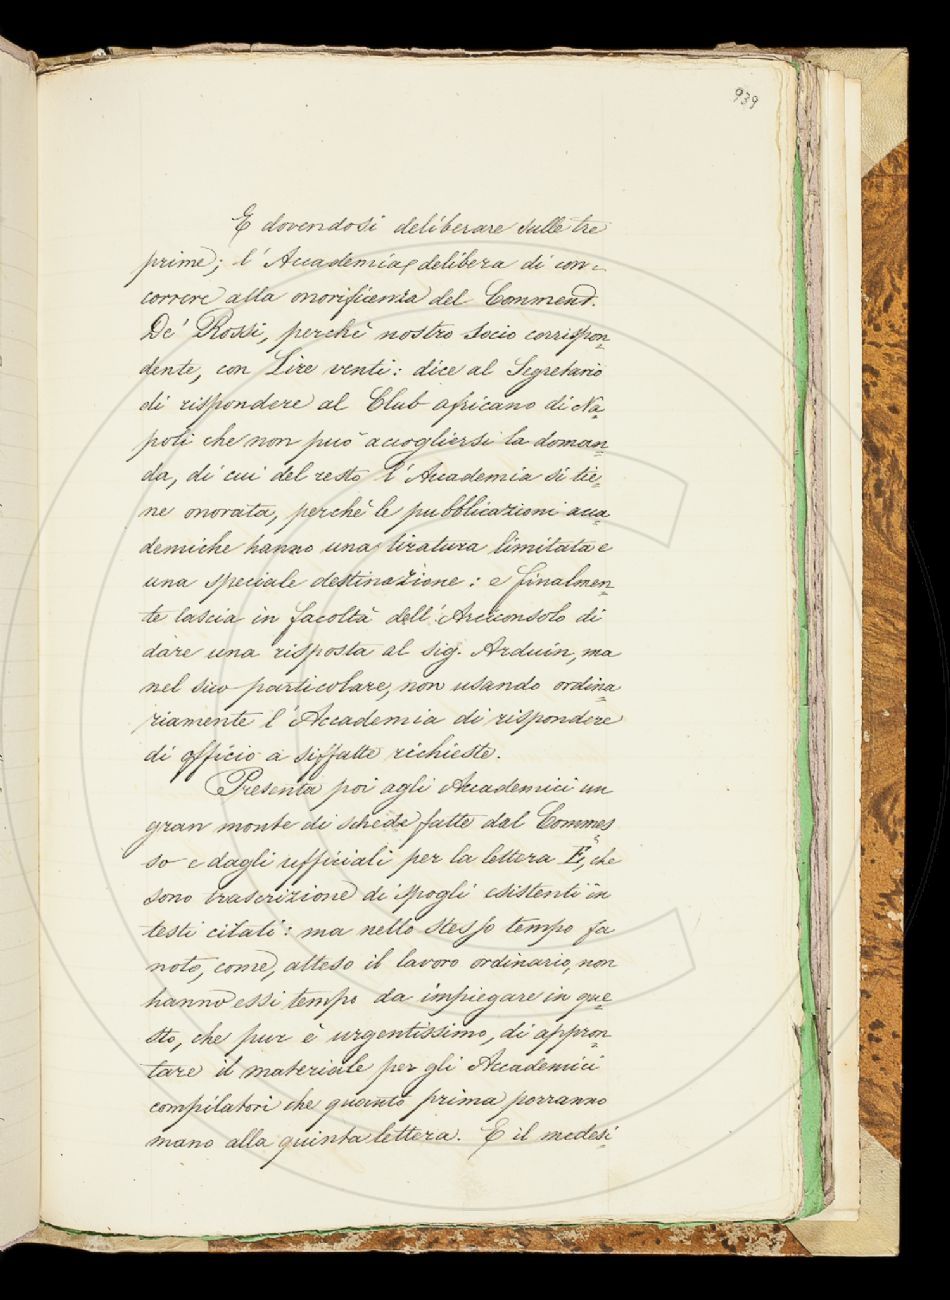 939
E dovendosi deliberare sulle tre
prime; l'Accademia delibera di con-
correre alla onorificenza del Commend.
De' Rossi, perchè nostro socio corrispon=
dente, con Lire venti: dice al Segretario
di rispondere al Club africano di Na=
poli che non può accogliersi la doman=
da, di cui del resto l'Accademia si tie=
ne onorata, perchè le pubblicazioni acca=
demiche hanno una tiratura limitata e
una speciale destinazione: e finalmen=
te lascia in facoltà dell'Arciconsolo di
dare una risposta al sig. Arduin, ma
nel suo particolare, non usando ordina=
riamente l'Accademia di rispondere
di officio a siffatte richieste.
Presenta poi agli Accademici un
gran monte di schede fatte dal Commes
so e dagli ufficiali per la lettera E, che
sono trascrizione di spogli esistenti in
testi citati: ma nello stesso tempo fa
noto, come, atteso il lavoro ordinario, non
hanno essi tempo da impiegare in que=
sto, che pur è urgentissimo, di appron=
tare il materiale per gli Accademici
compilatori che quanto prima porranno
mano alla quinta lettera. E il medesi=